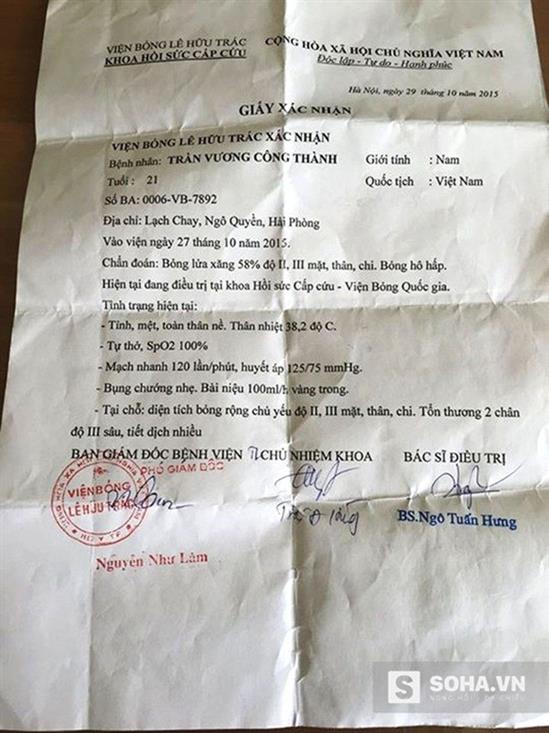 VIỆN BỎNG LÊ HỮU TRÁC
KHOA HỒI SỨC CẤP CỨU
CỘNG HÒA XÃ HỘI CHỦ NGHĨA VIỆT NAM
Độc lập - Tự do - Hạnh phúc
Hà Nội, ngày 29 tháng 10 năm 2015
GIẤY XÁC NHẬN
VIỆN BỎNG LÊ HỮU TRÁC XÁC NHẬN
Bệnh nhân: TRẦN VƯƠNG CÔNG THÀNH Giới tính : Nam
Tuổi : 21 Quốc tịch : Việt Nam
Số BA: 0006-VB-7892
Địa chỉ: Lạch Chay, Ngô Quyền, Hải Phòng
Vào viện ngày 27 tháng 10 năm 2015.
Chẩn đoán: Bỏng lửa xăng 58% độ II, III mặt, thân, chi. Bỏng hô hấp.
Hiện tại đang điều trị tại khoa Hồi sức Cấp cứu - Viện Bỏng Quốc gia.
Tình trạng hiện tại:
- Tỉnh, mệt, toàn thân nề. Thân nhiệt 38,2 độ C.
- Tự thở, SpO2 100%
- Mạch nhanh 120 lần/phút, huyết áp 125/75 mmHg.
- Bụng chướng nhẹ. Bài niệu 100ml/h vàng trong.
- Tại chỗ: diện tích bỏng rộng chủ yếu độ II, III mặt, thân, chi. Tổn thương 2 chân
độ III sâu, tiết dịch nhiều
BAN GIÁM ĐỐC BỆNH VIỆN CHỦ NHIỆM KHOA BÁC SĨ ĐIỀU TRỊ
PHÓ GIÁM ĐỐC
VIỆN BỎNG
LÊ HỮU TRÁC
BS.Ngô Tuấn Hưng
Nguyễn Như Lâm
S SOHA.VN